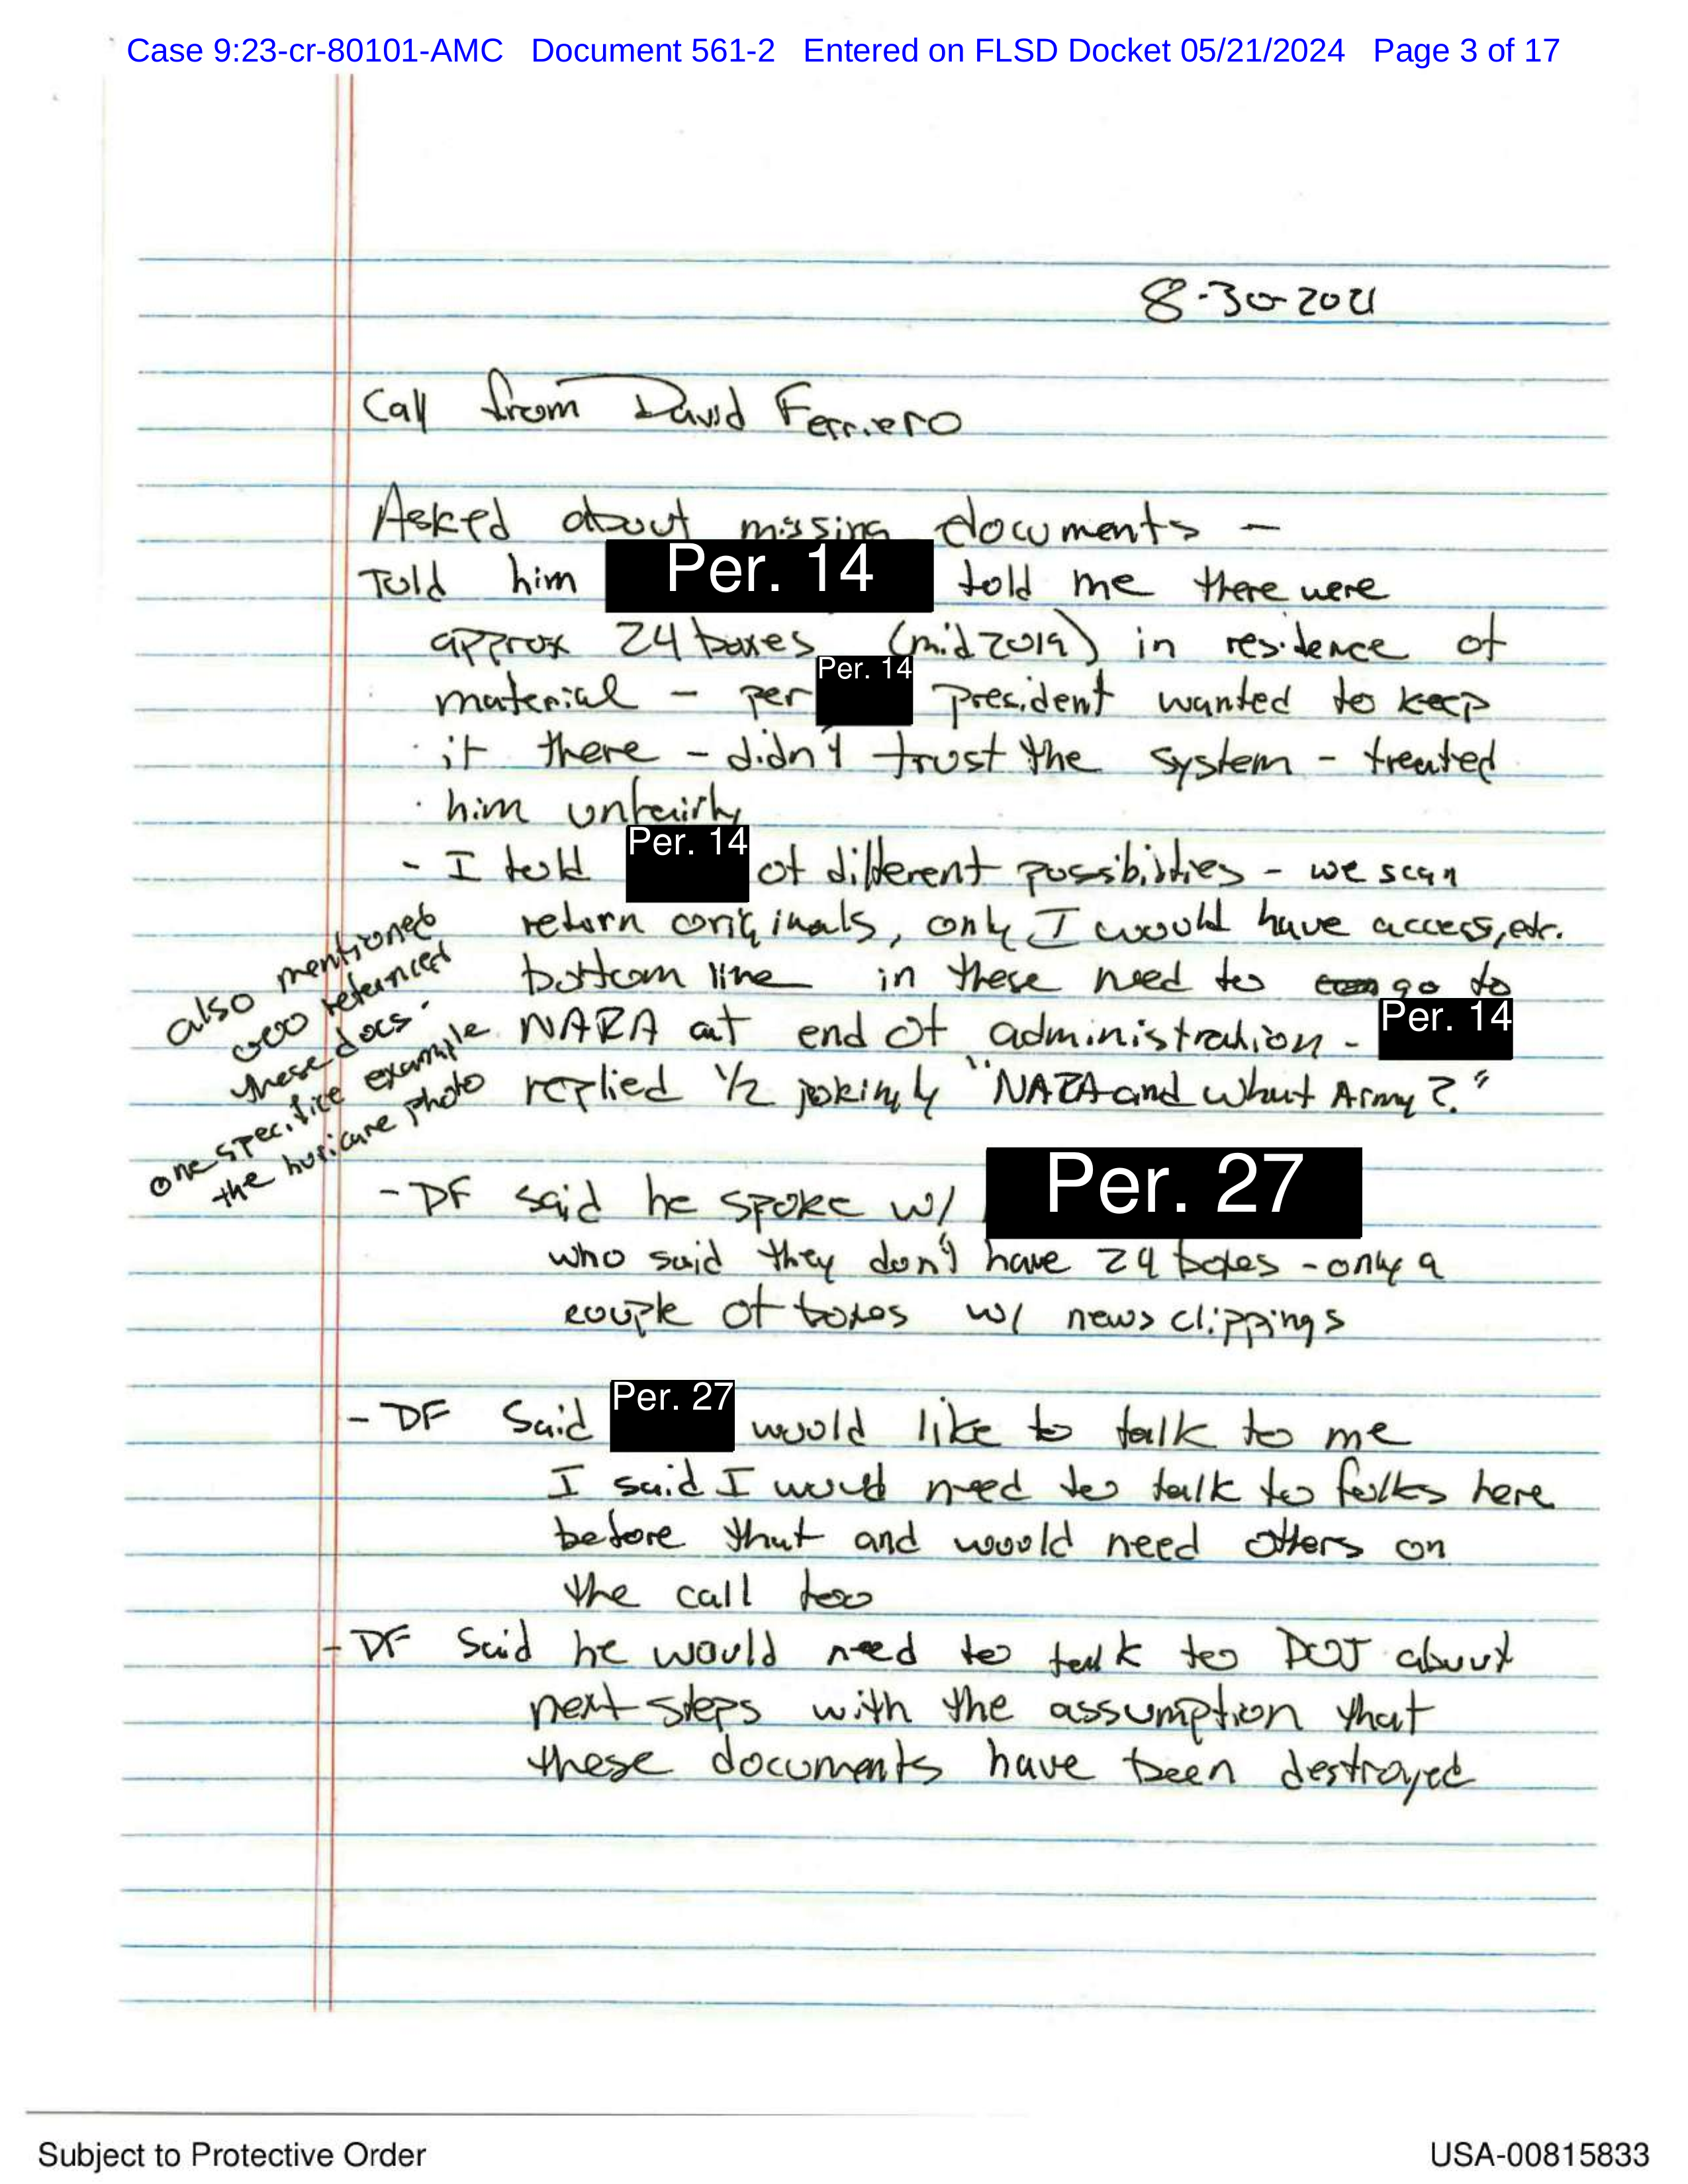 Case 9:23-cr-80101-AMC Document 561-2 Entered on FLSD Docket 05/21/2024 Page 3 of 17
8-30-2021
Call from David Ferriero
Asked about missing documents -
Told him Per. 14 told me there were
approx 24 boxes (mid 2019) in residence of
material - per Per. 14 president wanted to keep
it there - didn't trust the system - treated
him unfairly
- I told Per. 14 of different possibilities - we scan
return originals, only I would have access, etc.
bottom line in these need to go to
NARA at end of administration - Per. 14
replied 1/2 jokingly "NARA and what Army?"
also mentioned
OOO referenced
these docs.
one specific example
the huricane photo
- DF said he spoke w/ Per. 27
who said they don't have 24 boxes - only a
couple of boxes w/ news clippings
- DF Said Per. 27 would like to talk to me
I said I would need to talk to folks here
before that and would need others on
the call too
- DF Said he would need to talk to DOJ about
next steps with the assumption that
these documents have been destroyed
Subject to Protective Order
USA-00815833